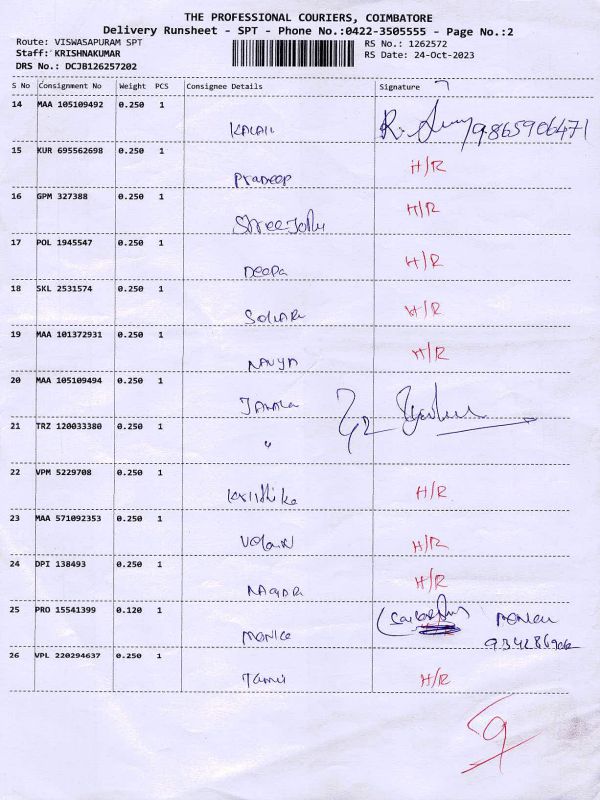 THE PROFESSIONAL COURIERS, COIMBATORE
Delivery Runsheet - SPT - Phone No.:0422-3505555 - Page No.:2
Route: VISWASAPURAM SPT
Staff: KRISHNAKUMAR
DRS No.: DCJB126257202
RS No.: 1262572
RS Date: 24-Oct-2023
S No Consignment No Weight PCS Consignee Details Signature
14 MAA 105109492 0.250 1 KALAII 9865906471
15 KUR 695562698 0.250 1 Pradeep H/R
16 GPM 327388 0.250 1 H/R
17 POL 1945547 0.250 1 Deepa H/R
18 SKL 2531574 0.250 1 H/R
19 MAA 101372931 0.250 1 NAVYA H/R
20 MAA 105109494 0.250 1
21 TRZ 120033380 0.250 1 "
22 VPM 5229708 0.250 1 H/R
23 MAA 571092353 0.250 1 H/R
24 DPI 138493 0.250 1 H/R
25 PRO 15541399 0.120 1 Monica
26 VPL 220294637 0.250 1 H/R